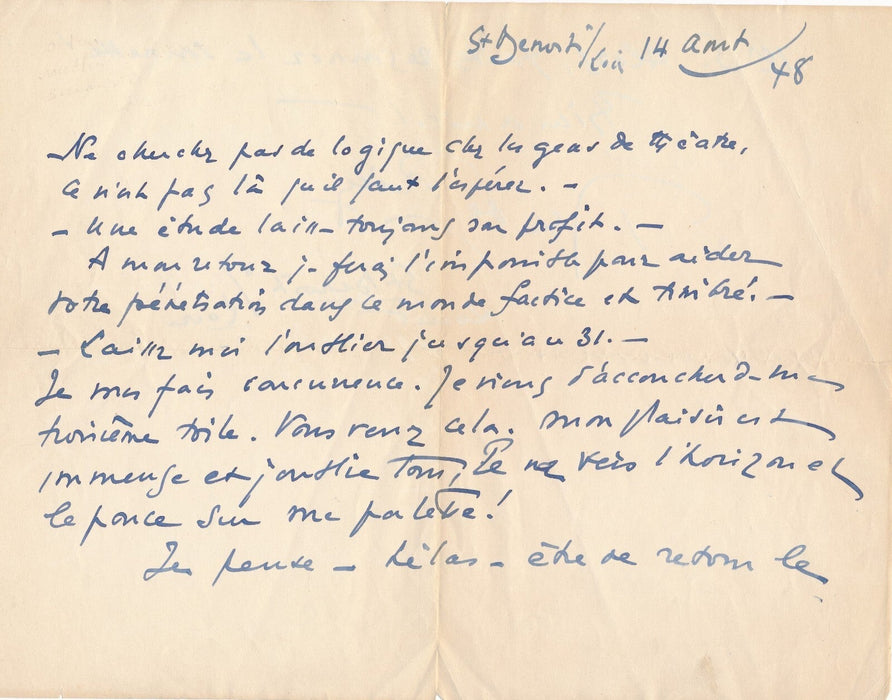 St Benoit/Loire 14 Aout
48
– Ne cherchez pas de logique chez les gens de théâtre,
Ce n'est pas là qu'il faut l'espérer. –
– Une étude laisse toujours son profit. –
A mon retour je ferai l'impossible pour aider
votre pénétration dans ce monde factice et timbré. –
– Laissez moi l'oublier jusqu'au 31. –
Je vous fais concurrence. Je viens d'accoucher de ma
troisième toile. Vous verrez cela. Mon plaisir est
immense et j'oublie tout, le nez vers l'horizon et
le pouce sur ma palette!
Je pense – hélas – être de retour le